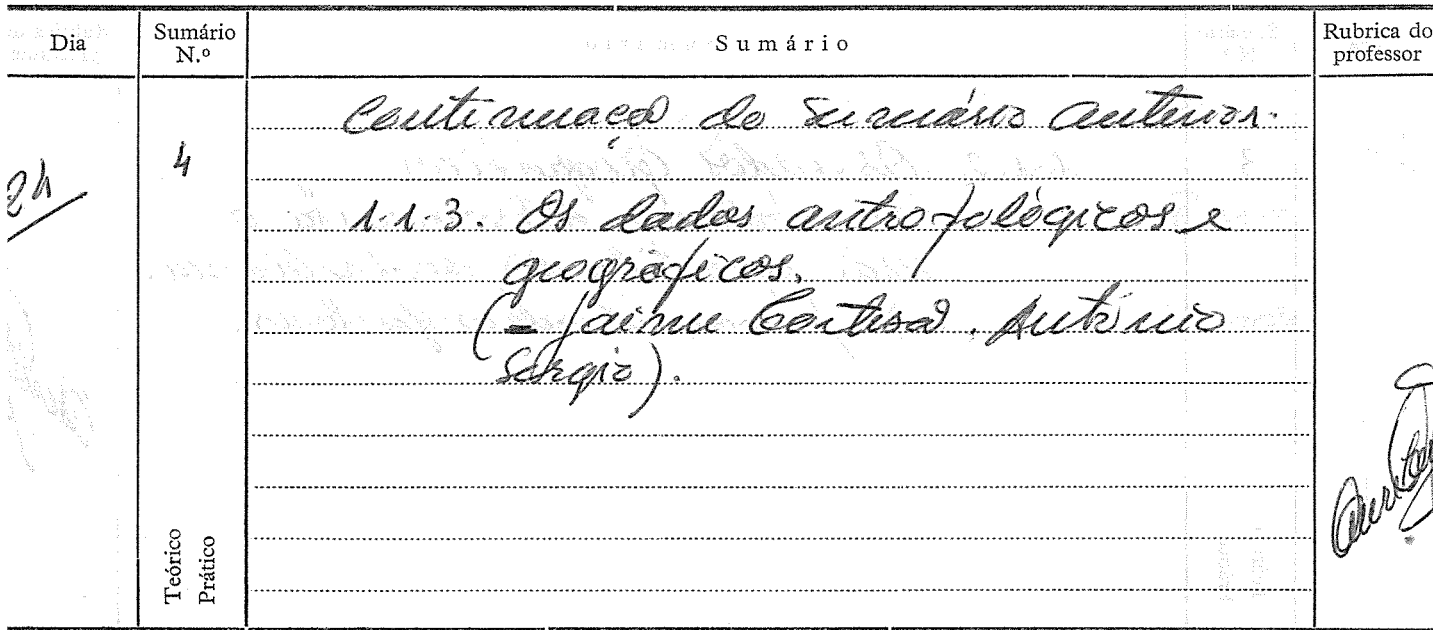 Dia
Sumário N.º
Sumário
Rubrica do professor
24
4
Continuação do Sumário anterior.
1.1.3. Os dados antropológicos e
geográficos.
(- Jaime Cortesão, António
Sérgio).
Teórico
Prático